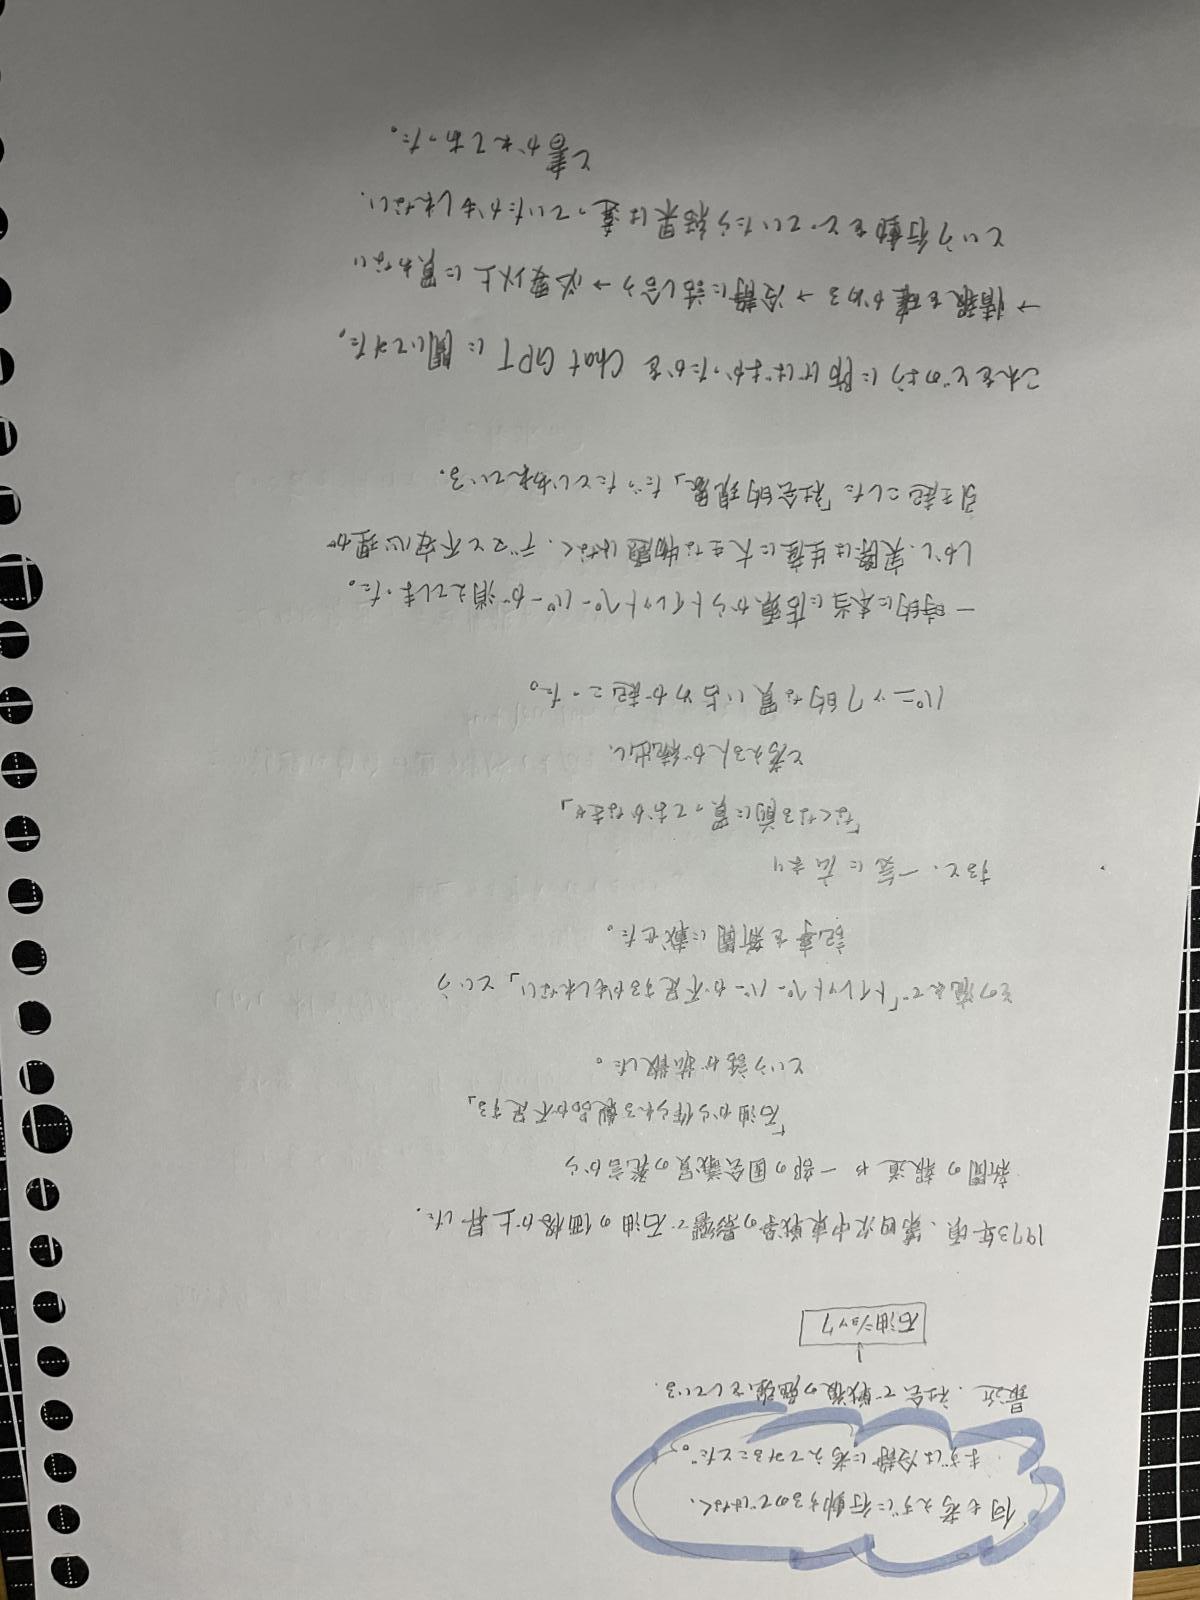 何も考えずに行動するのではなく、
まずは冷静に考えてみることだ。
最近、社会で戦後の勉強をしている。
石油ショック
1973年頃、第四次中東戦争の影響で石油の価格が上昇した。
新聞の報道や一部の国会議員の発言から
「石油から作られる製品が不足する」
という話が拡散した。
その流れで「トイレットペーパーが不足するかもしれない」という
記事を新聞に載せた。
すると、一気に広まり
「なくなる前に買っておかなきゃ」
と考える人が続出し
パニック的な買い占めが起こった。
一時的に本当に店頭からトイレットペーパーが消えてしまった。
しかし、実際は生産に大きな問題はなく、デマと不安心理が
引き起こした「社会的現象」だったといわれている。
これをどのように防げばよかったかをChat GPTに聞いてみた。
→情報を確かめる→冷静に話し合う→必要以上に買わない
という行動をとっていたら結果は違っていたかもしれない。
と書かれてあった。